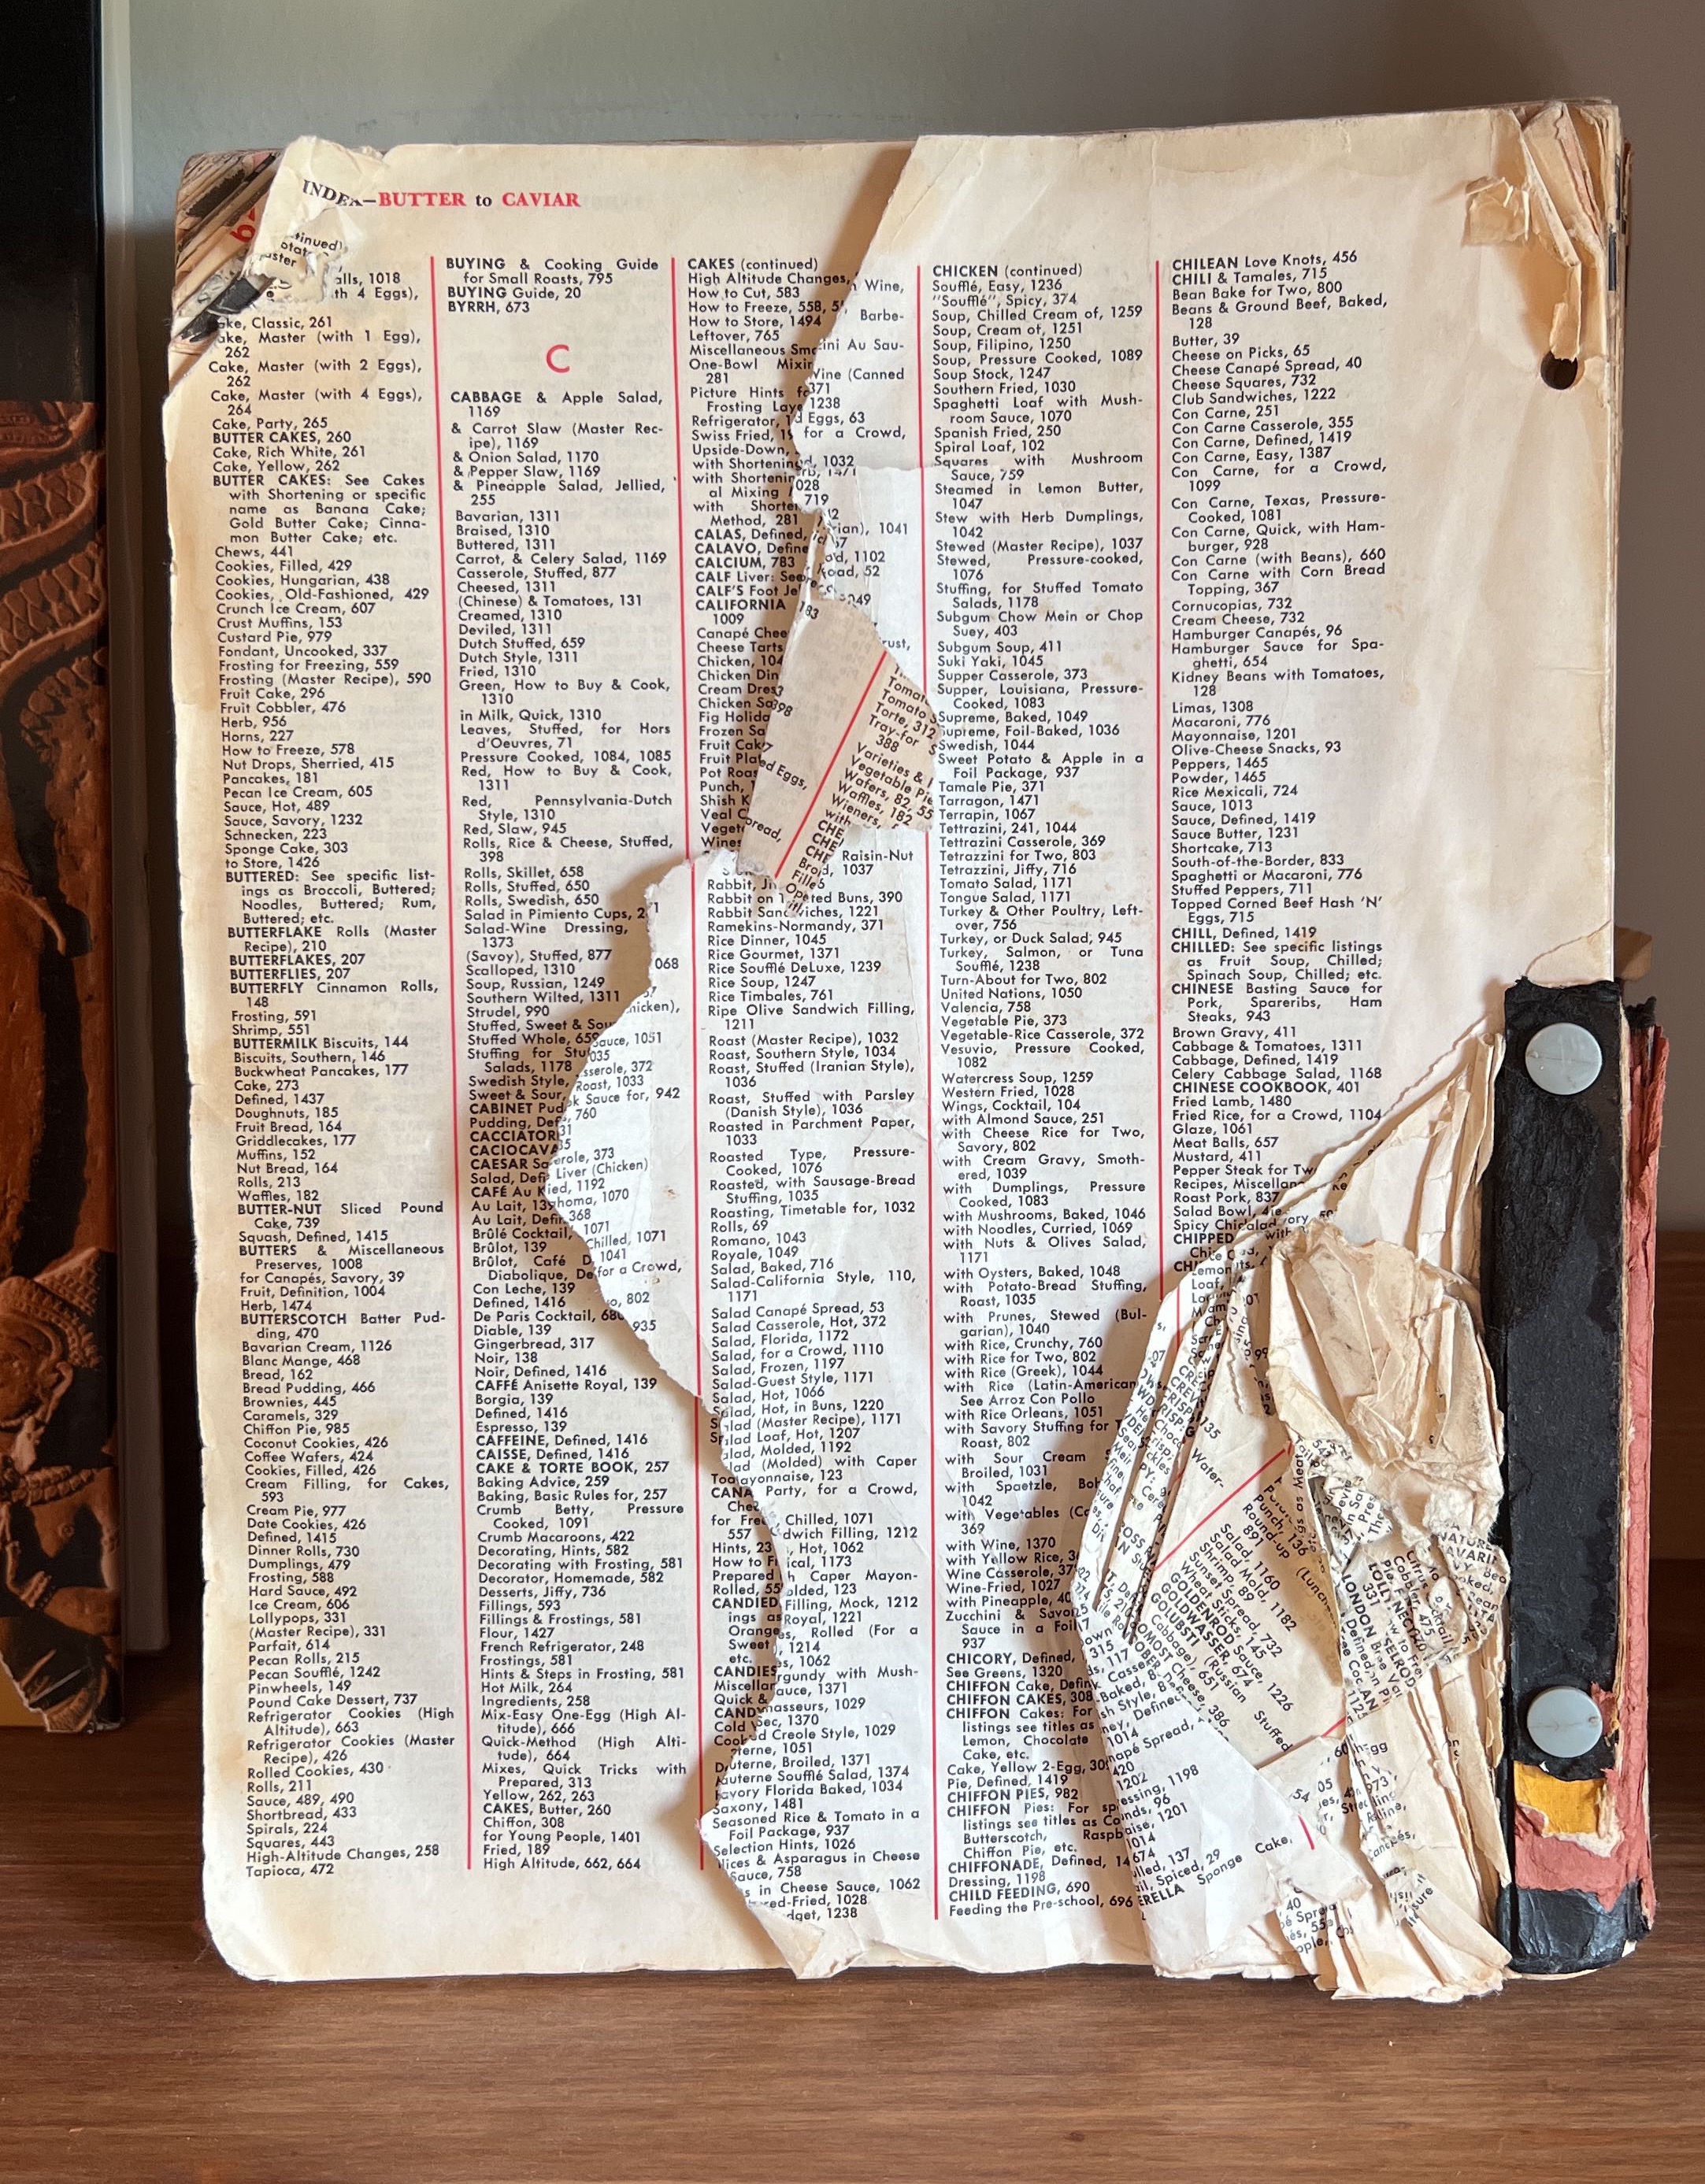 INDEX—BUTTER to CAVIAR
tinued)
alls, 1018
th 4 Eggs),
ake, Classic, 261
ake, Master (with 1 Egg),
262
Cake, Master (with 2 Eggs),
262
Cake, Master (with 4 Eggs),
264
Cake, Party, 265
BUTTER CAKES, 260
Cake, Rich White, 261
Cake, Yellow, 262
BUTTER CAKES: See Cakes
with Shortening or specific
name as Banana Cake;
Gold Butter Cake; Cinna-
mon Butter Cake; etc.
Chews, 441
Cookies, Filled, 429
Cookies, Hungarian, 438
Cookies, Old-Fashioned, 429
Crunch Ice Cream, 607
Crust Muffins, 153
Custard Pie, 979
Fondant, Uncooked, 337
Frosting for Freezing, 559
Frosting (Master Recipe), 590
Fruit Cake, 296
Fruit Cobbler, 476
Herb, 956
Horns, 227
How to Freeze, 578
Nut Drops, Sherried, 415
Pancakes, 181
Pecan Ice Cream, 605
Sauce, Hot, 489
Sauce, Savory, 1232
Schnecken, 223
Sponge Cake, 303
to Store, 1426
BUTTERED: See specific list-
ings as Broccoli, Buttered;
Noodles, Buttered; Rum,
Buttered; etc.
BUTTERFLAKE Rolls (Master
Recipe), 210
BUTTERFLAKES, 207
BUTTERFLIES, 207
BUTTERFLY Cinnamon Rolls,
148
Frosting, 591
Shrimp, 551
BUTTERMILK Biscuits, 144
Biscuits, Southern, 146
Buckwheat Pancakes, 177
Cake, 273
Defined, 1437
Doughnuts, 185
Fruit Bread, 164
Griddlecakes, 177
Muffins, 152
Nut Bread, 164
Rolls, 213
Waffles, 182
BUTTER-NUT Sliced Pound
Cake, 739
Squash, Defined, 1415
BUTTERS & Miscellaneous
Preserves, 1008
for Canapés, Savory, 39
Fruit, Definition, 1004
Herb, 1474
BUTTERSCOTCH Batter Pud-
ding, 470
Bavarian Cream, 1126
Blanc Mange, 468
Bread, 162
Bread Pudding, 466
Brownies, 445
Caramels, 329
Chiffon Pie, 985
Coconut Cookies, 426
Coffee Wafers, 424
Cookies, Filled, 426
Cream Filling, for Cakes,
593
Cream Pie, 977
Date Cookies, 426
Defined, 1415
Dinner Rolls, 730
Dumplings, 479
Frosting, 588
Hard Sauce, 492
Ice Cream, 606
Lollypops, 331
(Master Recipe), 331
Parfait, 614
Pecan Rolls, 215
Pecan Soufflé, 1242
Pinwheels, 149
Pound Cake Dessert, 737
Refrigerator Cookies (High
Altitude), 663
Refrigerator Cookies (Master
Recipe), 426
Rolled Cookies, 430
Rolls, 211
Sauce, 489, 490
Shortbread, 433
Spirals, 224
Squares, 443
High-Altitude Changes, 258
Tapioca, 472
BUYING & Cooking Guide
for Small Roasts, 795
BUYING Guide, 20
BYRRH, 673
C
CABBAGE & Apple Salad,
1169
& Carrot Slaw (Master Rec-
ipe), 1169
& Onion Salad, 1170
& Pepper Slaw, 1169
& Pineapple Salad, Jellied,
255
Bavarian, 1311
Braised, 1310
Buttered, 1311
Carrot, & Celery Salad, 1169
Casserole, Stuffed, 877
Cheesed, 1311
(Chinese) & Tomatoes, 131
Creamed, 1310
Deviled, 1311
Dutch Stuffed, 659
Dutch Style, 1311
Fried, 1310
Green, How to Buy & Cook,
1310
in Milk, Quick, 1310
Leaves, Stuffed, for Hors
d'Oeuvres, 71
Pressure Cooked, 1084, 1085
Red, How to Buy & Cook,
1311
Red, Pennsylvania-Dutch
Style, 1310
Red, Slaw, 945
Rolls, Rice & Cheese, Stuffed,
398
Rolls, Skillet, 658
Rolls, Stuffed, 650
Rolls, Swedish, 650
Salad in Pimiento Cups,
Salad-Wine Dressing,
1373
(Savoy), Stuffed, 877
Scalloped, 1310
Soup, Russian, 1249
Southern Wilted, 1311
Strudel, 990
Stuffed, Sweet & Sou
Stuffed Whole, 659
Stuffing for Stu
Salads, 1178
Swedish Style,
Sweet & Sour,
CABINET Pud
Pudding, Def
CACCIATOR
CACIOCAVA
CAESAR Sa
Salad, Defi
CAFÉ Au K
Au Lait, 13
Au Lait, Defin
Brûlé Cocktail,
Brûlot, 139
Brûlot, Café D
Diabolique, De
Con Leche, 139
Defined, 1416
De Paris Cocktail, 68
Diable, 139
Gingerbread, 317
Noir, 138
Noir, Defined, 1416
CAFFÉ Anisette Royal, 139
Borgia, 139
Defined, 1416
Espresso, 139
CAFFEINE, Defined, 1416
CAISSE, Defined, 1416
CAKE & TORTE BOOK, 257
Baking Advice, 259
Baking, Basic Rules for, 257
Crumb Betty, Pressure
Cooked, 1091
Crumb Macaroons, 422
Decorating, Hints, 582
Decorating with Frosting, 581
Decorator, Homemade, 582
Desserts, Jiffy, 736
Fillings, 593
Fillings & Frostings, 581
Flour, 1427
French Refrigerator, 248
Frostings, 581
Hints & Steps in Frosting, 581
Hot Milk, 264
Ingredients, 258
Mix-Easy One-Egg (High Al-
titude), 666
Quick-Method (High Alti-
tude), 664
Mixes, Quick Tricks with
Prepared, 313
Yellow, 262, 263
CAKES, Butter, 260
Chiffon, 308
for Young People, 1401
Fried, 189
High Altitude, 662, 664
CAKES (continued)
High Altitude Changes,
How to Cut, 583
How to Freeze, 558, 5
How to Store, 1494
Leftover, 765
Miscellaneous Sm
One-Bowl Mixin
281
Picture Hints f
Frosting Laye
Refrigerator, 1
Swiss Fried, 1
Upside-Down,
with Shortening
with Shortenin
al Mixing
with Shorte
Method, 281
CALAS, Defined,
CALAVO, Define
CALCIUM, 783
CALF Liver: See
CALF'S Foot Je
CALIFORNIA
1009
Canapé Chee
Cheese Tarts
Chicken, 104
Chicken Din
Cream Dres
Chicken Sa
Fig Holida
Frozen Sa
Fruit Cak
Fruit Pla
Pot Roas
Punch, 1
Shish K
Veal C
Veget
Wines
Wine,
Barbe-
ini Au Sau-
Wine (Canned
371
1238
Eggs, 63
for a Crowd,
1032
028
719
ian), 1041
1102
oad, 52
ed Eggs,
oread,
Tomat
Tomato S
Torte, 312
Tray-for
388
Varieties &
Vegetable Pie
Wafers, 82, 55
Waffles, 182
Wieners,
with
CHE
CHE
CHE
Raisin-Nut
1037
068
hicken),
Sauce, 1051
035
sserole, 372
Roast, 1033
k Sauce for, 942
760
erole, 373
Liver (Chicken)
ied, 1192
homa, 1070
368
1071
Chilled, 1071
1041
for a Crowd,
o, 802
935
Rabbit on Buns, 390
Rabbit Sandwiches, 1221
Ramekins-Normandy, 371
Rice Dinner, 1045
Rice Gourmet, 1371
Rice Soufflé DeLuxe, 1239
Rice Soup, 1247
Rice Timbales, 761
Ripe Olive Sandwich Filling,
1211
Roast (Master Recipe), 1032
Roast, Southern Style, 1034
Roast, Stuffed (Iranian Style),
1036
Roast, Stuffed with Parsley
(Danish Style), 1036
Roasted in Parchment Paper,
1033
Roasted Type, Pressure-
Cooked, 1076
Roasted, with Sausage-Bread
Stuffing, 1035
Roasting, Timetable for, 1032
Rolls, 69
Romano, 1043
Royale, 1049
Salad, Baked, 716
Salad-California Style, 110,
1171
Salad Canapé Spread, 53
Salad Casserole, Hot, 372
Salad, Florida, 1172
Salad, for a Crowd, 1110
Salad, Frozen, 1197
Salad-Guest Style, 1171
Salad, Hot, 1066
Salad, Hot, in Buns, 1220
Salad (Master Recipe), 1171
Salad Loaf, Hot, 1207
alad, Molded, 1192
lad (Molded) with Caper
ayonnaise, 123
Party, for a Crowd,
Chilled, 1071
dwich Filling, 1212
Hot, 1062
ical, 1173
h Caper Mayon-
olded, 123
Filling, Mock, 1212
Royal, 1221
s, Rolled (For a
1214
s, 1062
gundy with Mush-
auce, 1371
asseurs, 1029
Sec, 1370
d Creole Style, 1029
terne, 1051
uterne, Broiled, 1371
auterne Soufflé Salad, 1374
avory Florida Baked, 1034
Saxony, 1481
Seasoned Rice & Tomato in a
Foil Package, 937
Selection Hints, 1026
lices & Asparagus in Cheese
Sauce, 758
s in Cheese Sauce, 1062
red-Fried, 1028
dget, 1238
CANA
Che
for Fre
557
Hints, 23
How to F
Prepared
Rolled, 55
CANDIED
ings as
Orange
Sweet
etc.
CANDIES
Miscellan
Quick &
CAND
Cold
Cook
CHICKEN (continued)
Soufflé, Easy, 1236
"Soufflé", Spicy, 374
Soup, Chilled Cream of, 1259
Soup, Cream of, 1251
Soup, Filipino, 1250
Soup, Pressure Cooked, 1089
Soup Stock, 1247
Southern Fried, 1030
Spaghetti Loaf with Mush-
room Sauce, 1070
Spanish Fried, 250
Spiral Loaf, 102
Squares with Mushroom
Sauce, 759
Steamed in Lemon Butter,
1047
Stew with Herb Dumplings,
1042
Stewed (Master Recipe), 1037
Stewed, Pressure-cooked,
1076
Stuffing, for Stuffed Tomato
Salads, 1178
Subgum Chow Mein or Chop
Suey, 403
Subgum Soup, 411
Suki Yaki, 1045
Supper Casserole, 373
Supper, Louisiana, Pressure-
Cooked, 1083
Supreme, Baked, 1049
Supreme, Foil-Baked, 1036
Swedish, 1044
Sweet Potato & Apple in a
Foil Package, 937
Tamale Pie, 371
Tarragon, 1471
Terrapin, 1067
Tettrazini, 241, 1044
Tettrazini Casserole, 369
Tetrazzini for Two, 803
Tetrazzini, Jiffy, 716
Tomato Salad, 1171
Tongue Salad, 1171
Turkey & Other Poultry, Left-
over, 756
Turkey, or Duck Salad, 945
Turkey, Salmon, or Tuna
Soufflé, 1238
Turn-About for Two, 802
United Nations, 1050
Valencia, 758
Vegetable Pie, 373
Vegetable-Rice Casserole, 372
Vesuvio, Pressure Cooked,
1082
Watercress Soup, 1259
Western Fried, 1028
Wings, Cocktail, 104
with Almond Sauce, 251
with Cheese Rice for Two,
Savory, 802
with Cream Gravy, Smoth-
ered, 1039
with Dumplings, Pressure
Cooked, 1083
with Mushrooms, Baked, 1046
with Noodles, Curried, 1069
with Nuts & Olives Salad,
1171
with Oysters, Baked, 1048
with Potato-Bread Stuffing,
Roast, 1035
with Prunes, Stewed (Bul-
garian), 1040
with Rice, Crunchy, 760
with Rice for Two, 802
with Rice (Greek), 1044
with Rice (Latin-American
See Arroz Con Pollo
with Rice Orleans, 1051
with Savory Stuffing for T
Roast, 802
with Sour Cream
Broiled, 1031
with Spaetzle, Bo
1042
with Vegetables (Ca
369
with Wine, 1370
with Yellow Rice, 3
Wine Casserole, 37
Wine-Fried, 1027
with Pineapple, 40
Zucchini & Savo
Sauce in a Foil
937
CHICORY, Defined,
See Greens, 1320
CHIFFON Cake, Defin
CHIFFON CAKES, 308
CHIFFON Cakes: For
listings see titles as
Lemon, Chocolate
Cake, etc.
Cake, Yellow 2-Egg, 30
Pie, Defined, 1419
CHIFFON PIES, 982
CHIFFON Pies: For sp
listings see titles as Co
Butterscotch, Raspb
Chiffon Pie, etc.
CHIFFONADE, Defined, 14
Dressing, 1198
CHILD FEEDING, 690
Feeding the Pre-school, 696
CHILEAN Love Knots, 456
CHILI & Tamales, 715
Bean Bake for Two, 800
Beans & Ground Beef, Baked,
128
Butter, 39
Cheese on Picks, 65
Cheese Canapé Spread, 40
Cheese Squares, 732
Club Sandwiches, 1222
Con Carne, 251
Con Carne Casserole, 355
Con Carne, Defined, 1419
Con Carne, Easy, 1387
Con Carne, for a Crowd,
1099
Con Carne, Texas, Pressure-
Cooked, 1081
Con Carne, Quick, with Ham-
burger, 928
Con Carne (with Beans), 660
Con Carne with Corn Bread
Topping, 367
Cornucopias, 732
Cream Cheese, 732
Hamburger Canapés, 96
Hamburger Sauce for Spa-
ghetti, 654
Kidney Beans with Tomatoes,
128
Limas, 1308
Macaroni, 776
Mayonnaise, 1201
Olive-Cheese Snacks, 93
Peppers, 1465
Powder, 1465
Rice Mexicali, 724
Sauce, 1013
Sauce, Defined, 1419
Sauce Butter, 1231
Shortcake, 713
South-of-the-Border, 833
Spaghetti or Macaroni, 776
Stuffed Peppers, 711
Topped Corned Beef Hash 'N'
Eggs, 715
CHILL, Defined, 1419
CHILLED: See specific listings
as Fruit Soup, Chilled;
Spinach Soup, Chilled; etc.
CHINESE Basting Sauce for
Pork, Spareribs, Ham
Steaks, 943
Brown Gravy, 411
Cabbage & Tomatoes, 1311
Cabbage, Defined, 1419
Celery Cabbage Salad, 1168
CHINESE COOKBOOK, 401
Fried Lamb, 1480
Fried Rice, for a Crowd, 1104
Glaze, 1061
Meat Balls, 657
Mustard, 411
Pepper Steak for Tw
Recipes, Miscellan
Roast Pork, 837
Salad Bowl,
Spicy Chic
CHIPPED
Water-
Punch, 136
Round-up
891
Salad, 1160
Salad Mold, 1182
Shrimp, 889
Sunset Spread, 732
Wheat Sticks, 145
GOLDENROD Sauce, 1226
GOLDWASSER, 674
GOLUBSTI (Russian Stuffed
Cabbage), 651
Cheese, 386
napé Spread,
420
1202
essing, 1198
nds, 96
aise, 1201
1014
674
illed, 137
ail, Spiced, 29
ERELLA Sponge Cake,
LONDON